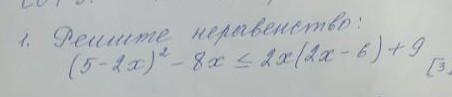 1. Решите неравенство:
(5-2x)² - 8x ≤ 2x(2x-6)+9
[3